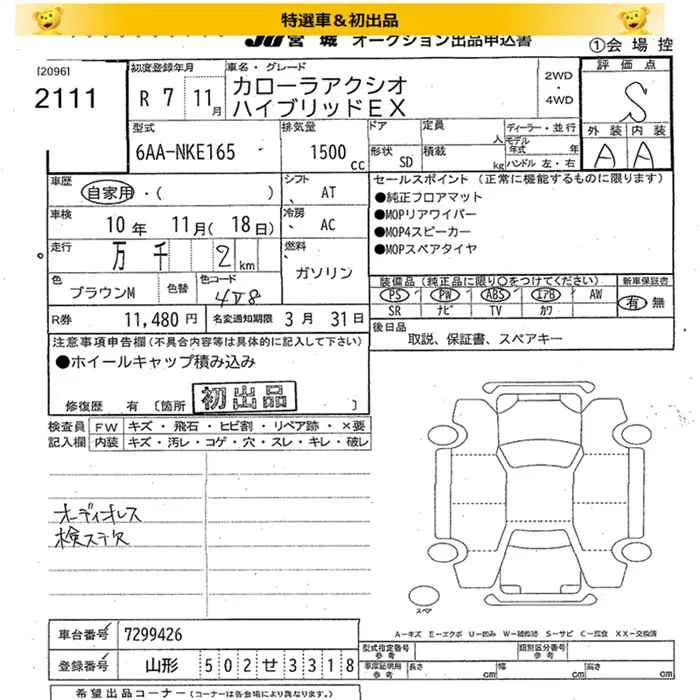 特選車&初出品
JU宮城 オークション出品申込書
①会場控
[2096]
2111
初度登録年月
R 7 11月
車名・グレード
カローラアクシオ
ハイブリッドEX
2WD
・
4WD
評価点
S
外装 内装
A A
型式
6AA-NKE165
排気量
1500cc
ドア
形状 SD
定員 人
積載 kg
ディーラー・並行
モデル年式 年
ハンドル 左・右
車歴
自家用・( )
シフト
AT
車検
10年 11月(18日)
冷房
AC
走行
万 千 2 km
燃料
ガソリン
色
ブラウンM
色替
色コード
4V8
R券 11,480円
名変通知期限 3月 31日
セールスポイント(正常に機能するものに限ります)
●純正フロアマット
●MOPリアワイパー
●MOP4スピーカー
●MOPスペアタイヤ
装備品(純正品に限り○をつけてください)
PS PW ABS エアB AW
SR ナビ TV カワ
新車保証書
有 無
後日品
取説、保証書、スペアキー
注意事項申告欄(不具合内容等は具体的に記入して下さい)
●ホイールキャップ積み込み
修復歴 有 〔箇所 〕
初出品
検査員記入欄
FW キズ・飛石・ヒビ割・リペア跡・×要
内装 キズ・汚レ・コゲ・穴・スレ・キレ・破レ
オーディオレス
検ステ欠
スペア
A-キズ E-エクボ U-凹み W-補修跡 S-サビ C-腐食 XX-交換済
車台番号 7299426
登録番号 山形 502せ3318
型式指定番号 参考
類別区分番号 参考
車庫証明用 参考 長さ cm 幅 cm 高さ cm
希望出品コーナー(コーナーは各会場により異なります。)